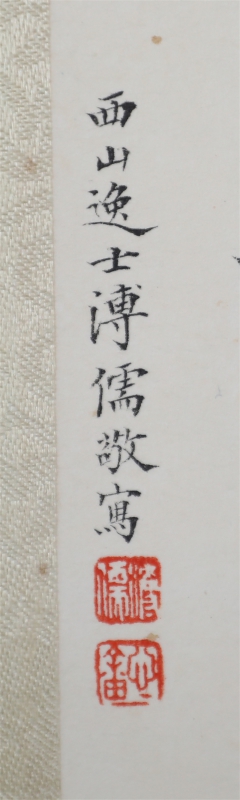 西山逸士溥儒敬寫
溥儒
心畬